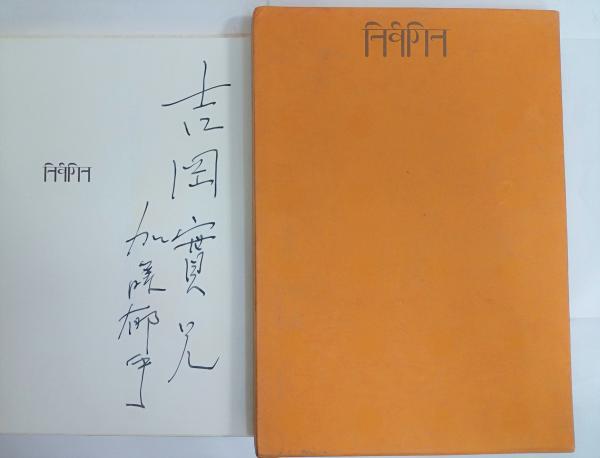 निर्वगिन
吉岡實兄
加藤郁乎
निर्वगिन